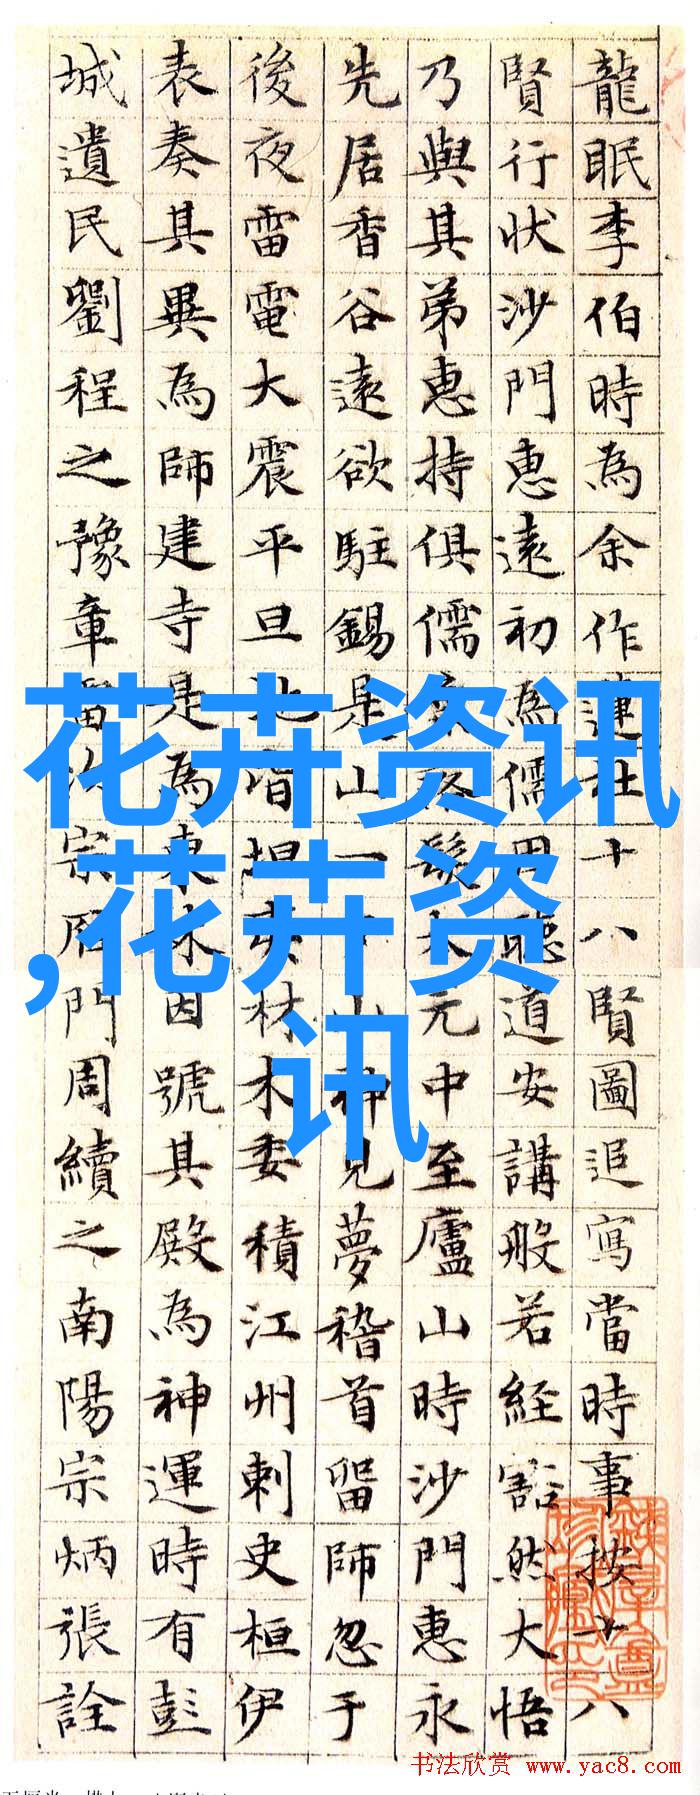 龍眠李伯時為余作蓮社十八賢圖追寫當時事按十八
賢行狀沙門惠遠初為儒用聽道安講般若經豁然大悟
乃與其弟惠持俱儒落髮太元中至廬山時沙門惠永
先居香谷遠欲駐錫是山一山神見夢稽首留師忽于
後夜雷電大震平旦地皆坦夷材木委積江州刺史桓伊
表奏其異為師建寺是為東林因號其殿為神運時有彭
城遺民劉程之豫章雷次宗雁門周續之南陽宗炳張詮
花卉资讯
,花卉资
讯
书法欣赏 www.yac8.com